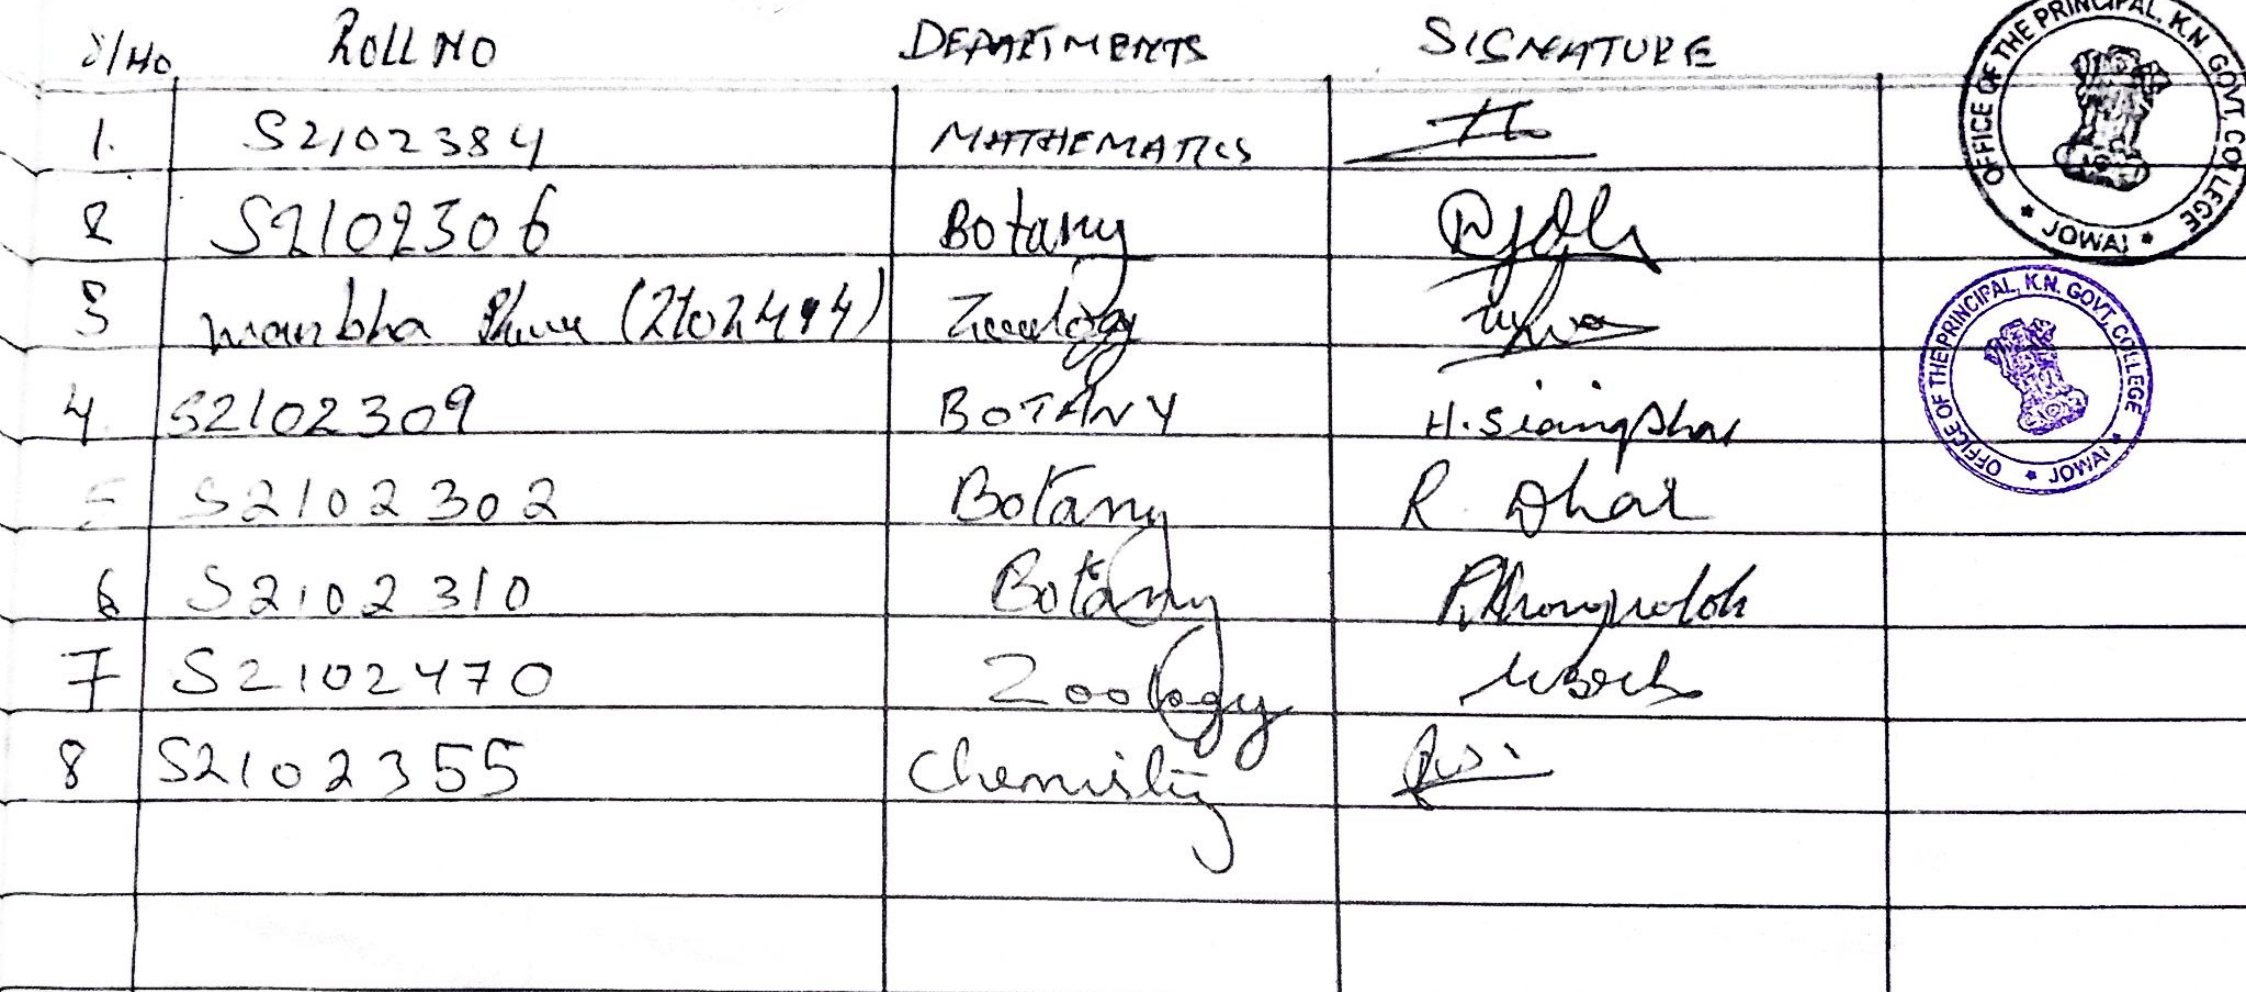 S/No ROLL NO DEPARTMENTS SIGNATURE
1. S2102384 MATHEMATICS
2 S2102306 Botany
3 Wanbha (2102494) Zoology
4 S2102309 BOTANY H. Siangshai
5 S2102302 Botany R. Dhar
6 S2102310 Botany
7 S2102470 Zoology
8 S2102355 Chemistry
OFFICE OF THE PRINCIPAL, K.N. GOVT. COLLEGE
* JOWAI *
OFFICE OF THE PRINCIPAL, K.N. GOVT. COLLEGE
* JOWAI *